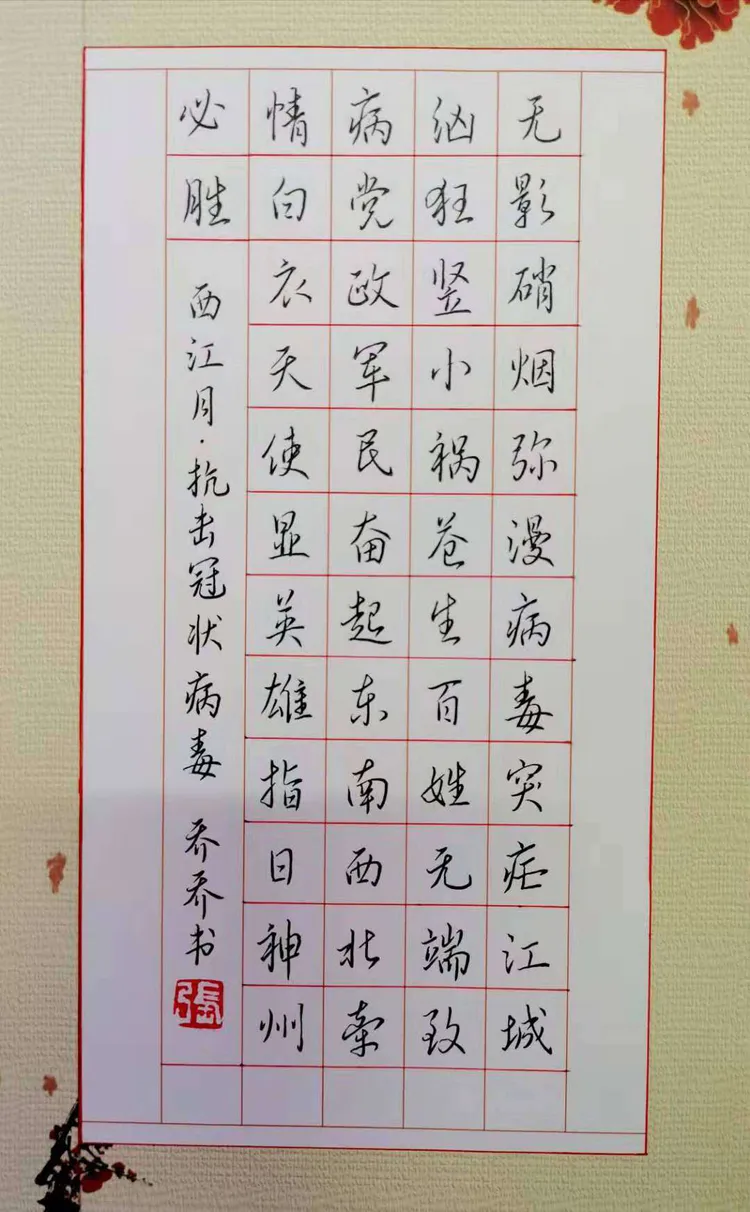 无影硝烟弥漫病毒突疟江城
汹狂竖小祸苍生百姓无端致
病党政军民奋起东南西北牵
情白衣天使显英雄指日神州
必胜 西江月·抗击冠状病毒 乔乔书
張